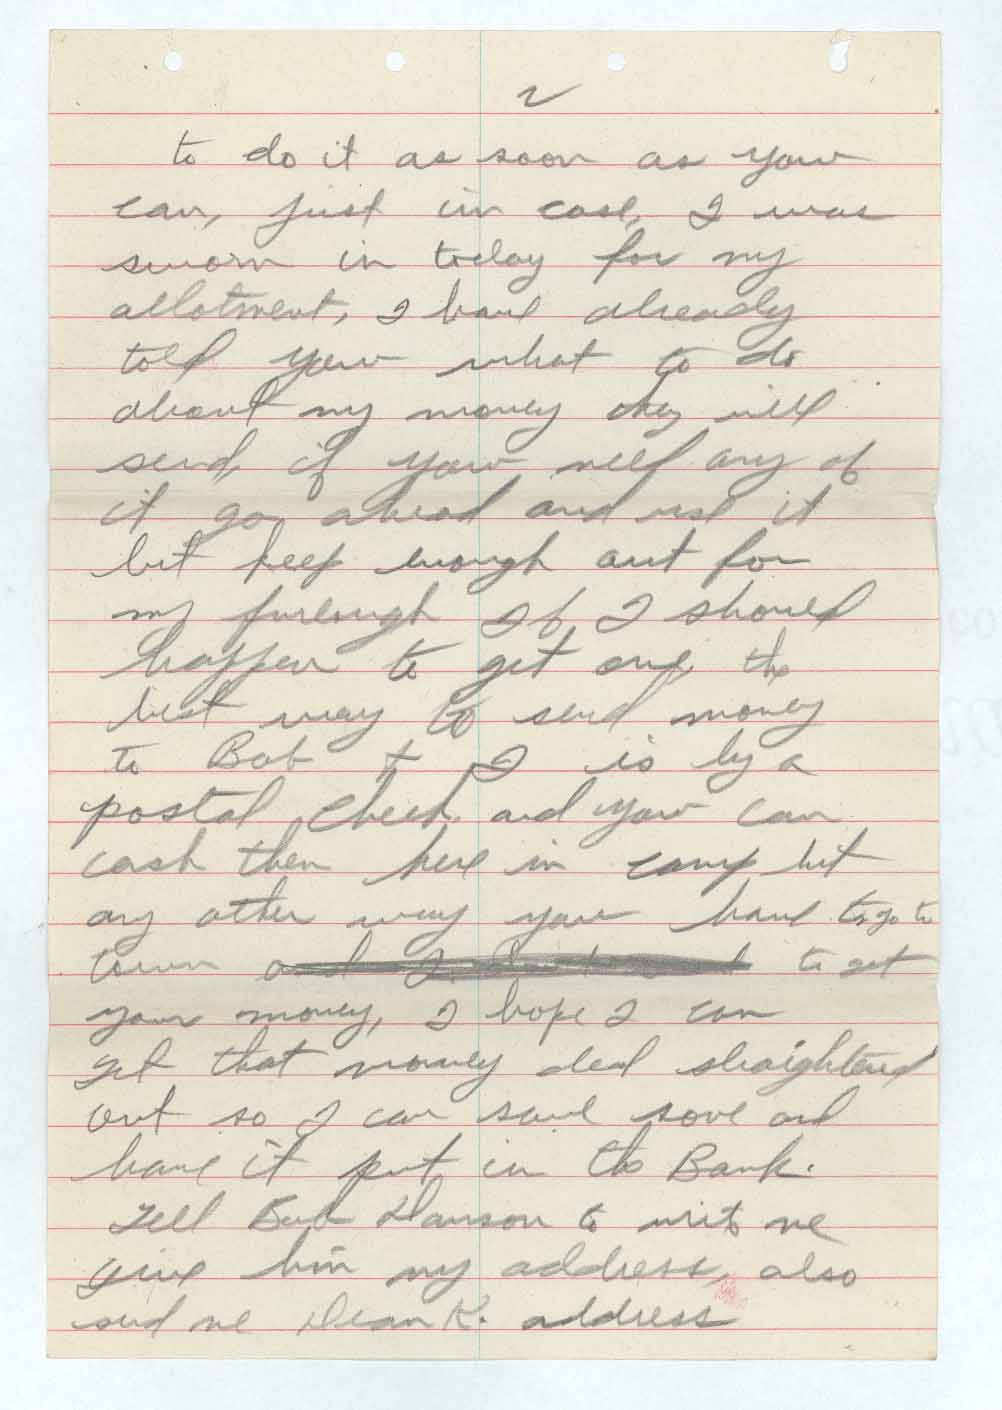 2
to do it as soon as you
can, just in case, I was
sworn in today for my
allotment, I have already
told you what to do
about my money they will
send, if you need any of
it go ahead and use it
but keep enough out for
my furlough If I should
happen to get one, the
best way to send money
to Bob + I is by a
postal check. and you can
cash them here in camp, but
any other way you have to go to
town to get
your money, I hope I can
get that money deal straightened
out so I can save some and
have it put in the Bank.
Tell Bud Hanson to write me
give him my address, also
send me Dean K. address